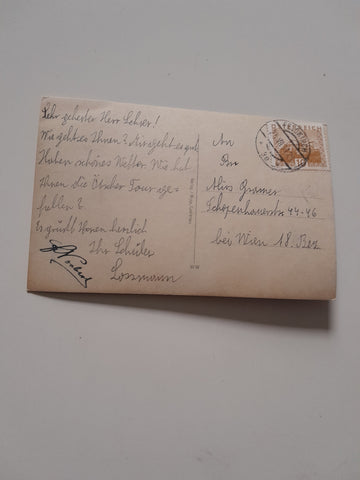 Sehr geehrter Herr Lehrer!
Wie geht es Ihnen? Mir geht es gut
Haben schönes Wetter. Wie hat
Ihnen die Ötscher Tour ge-
fallen?
Es grüßt Ihnen herzlich
Ihr Schüler
Lossmann
An
Alois Gramer
Schopenhauerstr 44-46
bei Wien 18. Bez